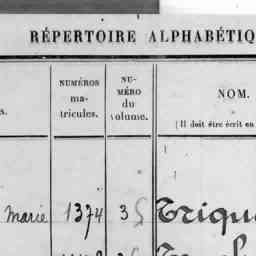 RÉPERTOIRE ALPHABÉTIQ
NUMÉROS
ma-
tricules.
NU-
MÉRO
du
volume.
NOM.
(Il doit être écrit en
s.
marie 1374 3 Triqu